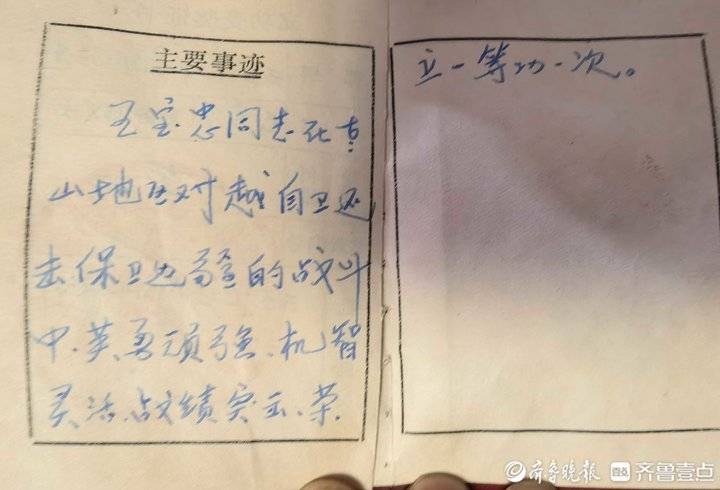 主要事迹
王宝忠同志在者
山地区对越自卫还
击保卫边疆的战斗
中.英勇顽强、机智
灵活、战绩突出、荣
立一等功一次。
齐鲁晚报 齐鲁壹点